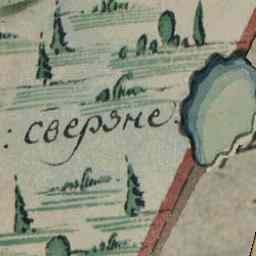 : сверяне :